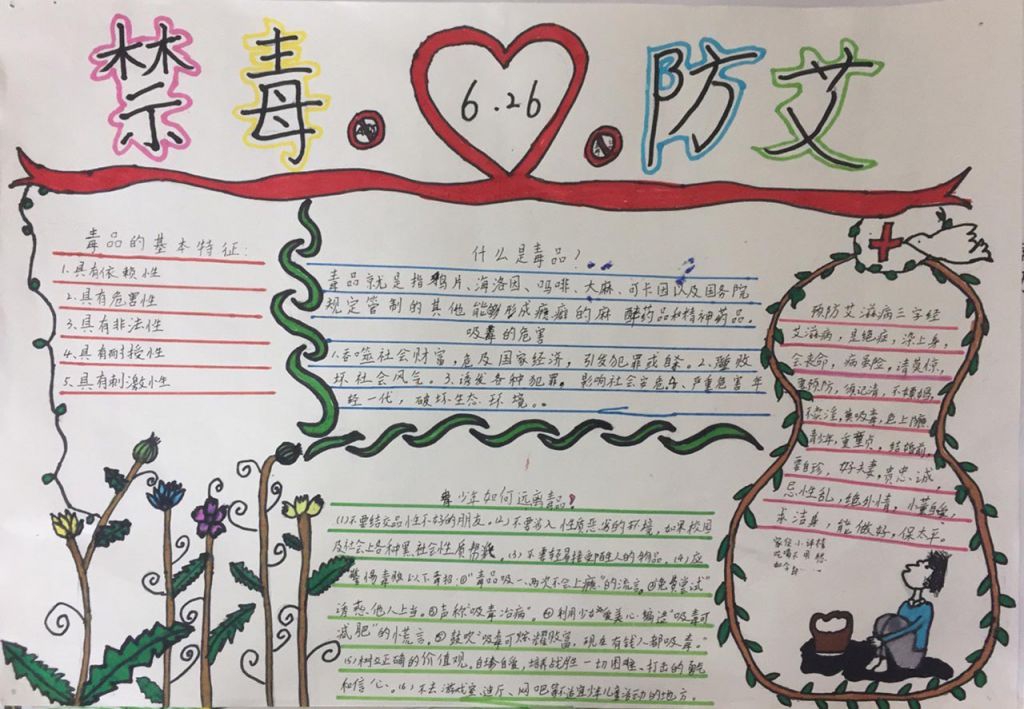 禁毒 6.26 防艾
毒品的基本特征:
1.具有依赖性
2.具有危害性
3.具有非法性
4.具有耐授性
5.具有刺激性
什么是毒品?
毒品就是指鸦片、海洛因、吗啡、大麻、可卡因以及国务院
规定管制的其他能够形成瘾癖的麻醉药品和精神药品。
吸毒的危害
1.吞噬社会财富,危及国家经济,引发犯罪或自杀。2.败
坏社会风气。3.诱发各种犯罪,影响社会安危,严重危害年
轻一代,破坏生态环境。
青少年如何远离毒品?
(1)不要结交品性不好的朋友。(2)不要出入性质恶劣的环境,如果校园
及社会上各种黑社会性质帮。(3)不要轻易接受陌生人的物品。(4)应
警惕毒贩以下替招:①"毒品吸一两次不会上瘾"的流言。②免费尝试"
诱惑他人上当。③声称"吸毒治病"④利用少女爱美心编造"吸毒可
减肥"的慌言。⑤鼓吹"吸毒可炫耀致富,现在有钱人都吸毒。"
(5)树立正确的价值观。自尊自爱,培养战胜一切困难、打击的勇气
和信心。(6)不去游戏室、迪厅、网吧等不适宜少年儿童活动的地方。
预防艾滋病三字经
艾滋病,是绝症,染上身,
会丧命,病虽险,请莫惊,
重预防,须记清,不嫖娼,
不卖淫,莫吸毒,
青少年,重童贞。结婚前,
要自珍,好夫妻,贵忠诚,
忌性乱,绝外情,懂自爱,
求洁身,能做好,保太平。